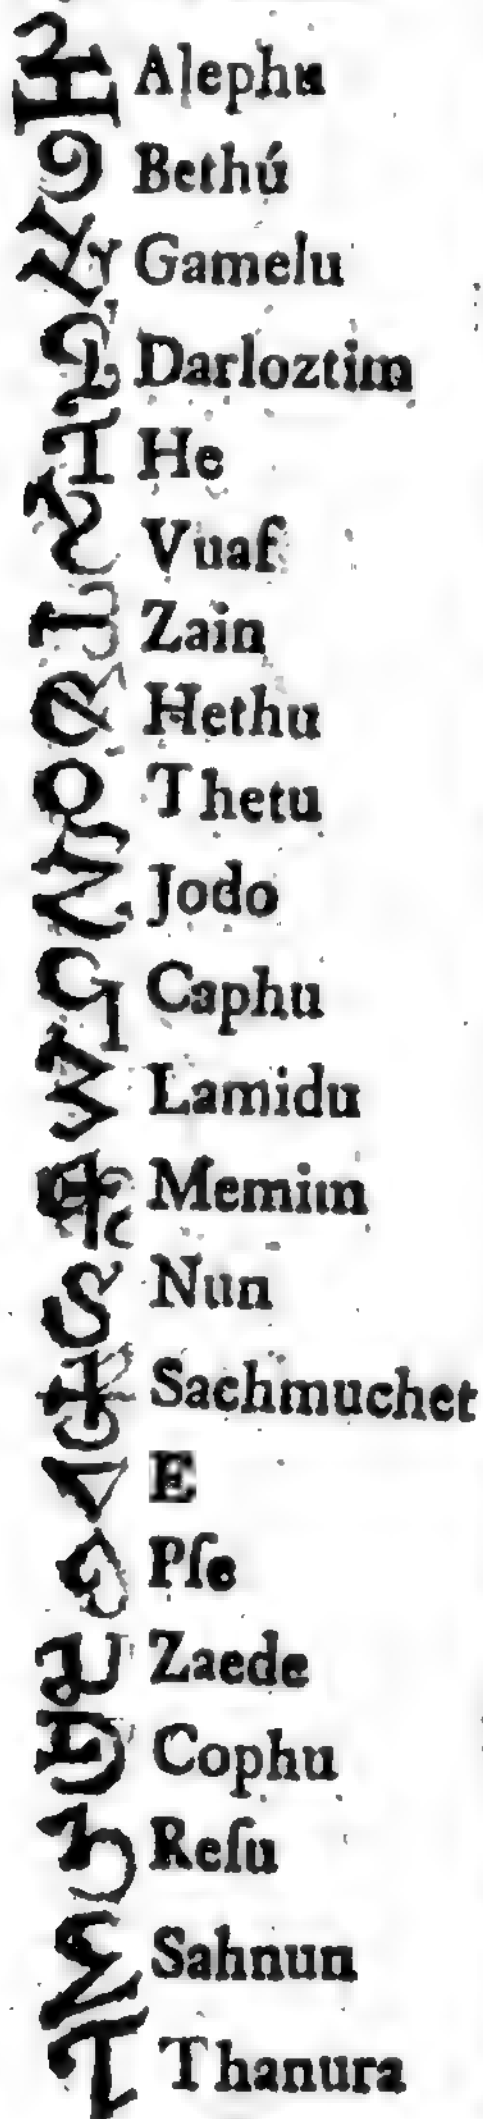 Alephu
Bethú
Gamelu
Darloztim
He
Vuaf
Zain
Hethu
Thetu
Jodo
Caphu
Lamidu
Memim
Nun
Sachmuchet
E
Pſe
Zaede
Cophu
Reſu
Sahnun
Thanura